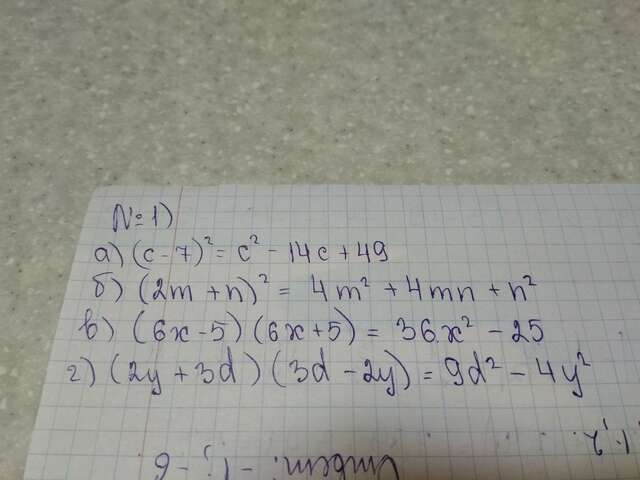 №1)
а) (c-7)² = c² - 14c + 49
б) (2m + n)² = 4m² + 4mn + n²
в) (6x-5)(6x+5) = 36x² - 25
г) (2y + 3d)(3d - 2y) = 9d² - 4y²